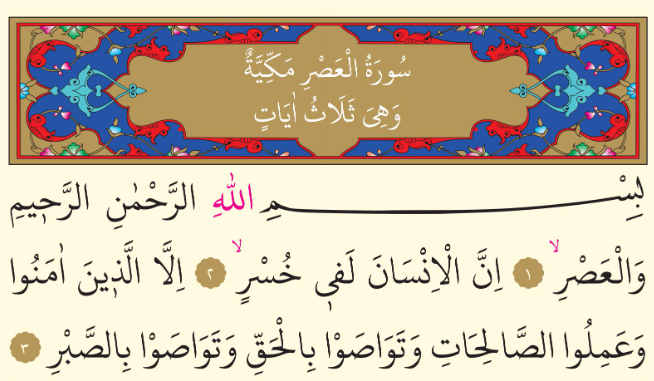 سُورَةُ الْعَصْرِ مَكِّيَّةٌ
وَهِىَ ثَلَاثُ اٰيَاتٍ
بِسْمِ اللّٰهِ الرَّحْمٰنِ الرَّح۪يمِ
وَالْعَصْرِۙ ١ اِنَّ الْاِنْسَانَ لَف۪ي خُسْرٍۙ ٢ اِلَّا الَّذ۪ينَ اٰمَنُوا
وَعَمِلُوا الصَّالِحَاتِ وَتَوَاصَوْا بِالْحَقِّ وَتَوَاصَوْا بِالصَّبْرِ ٣